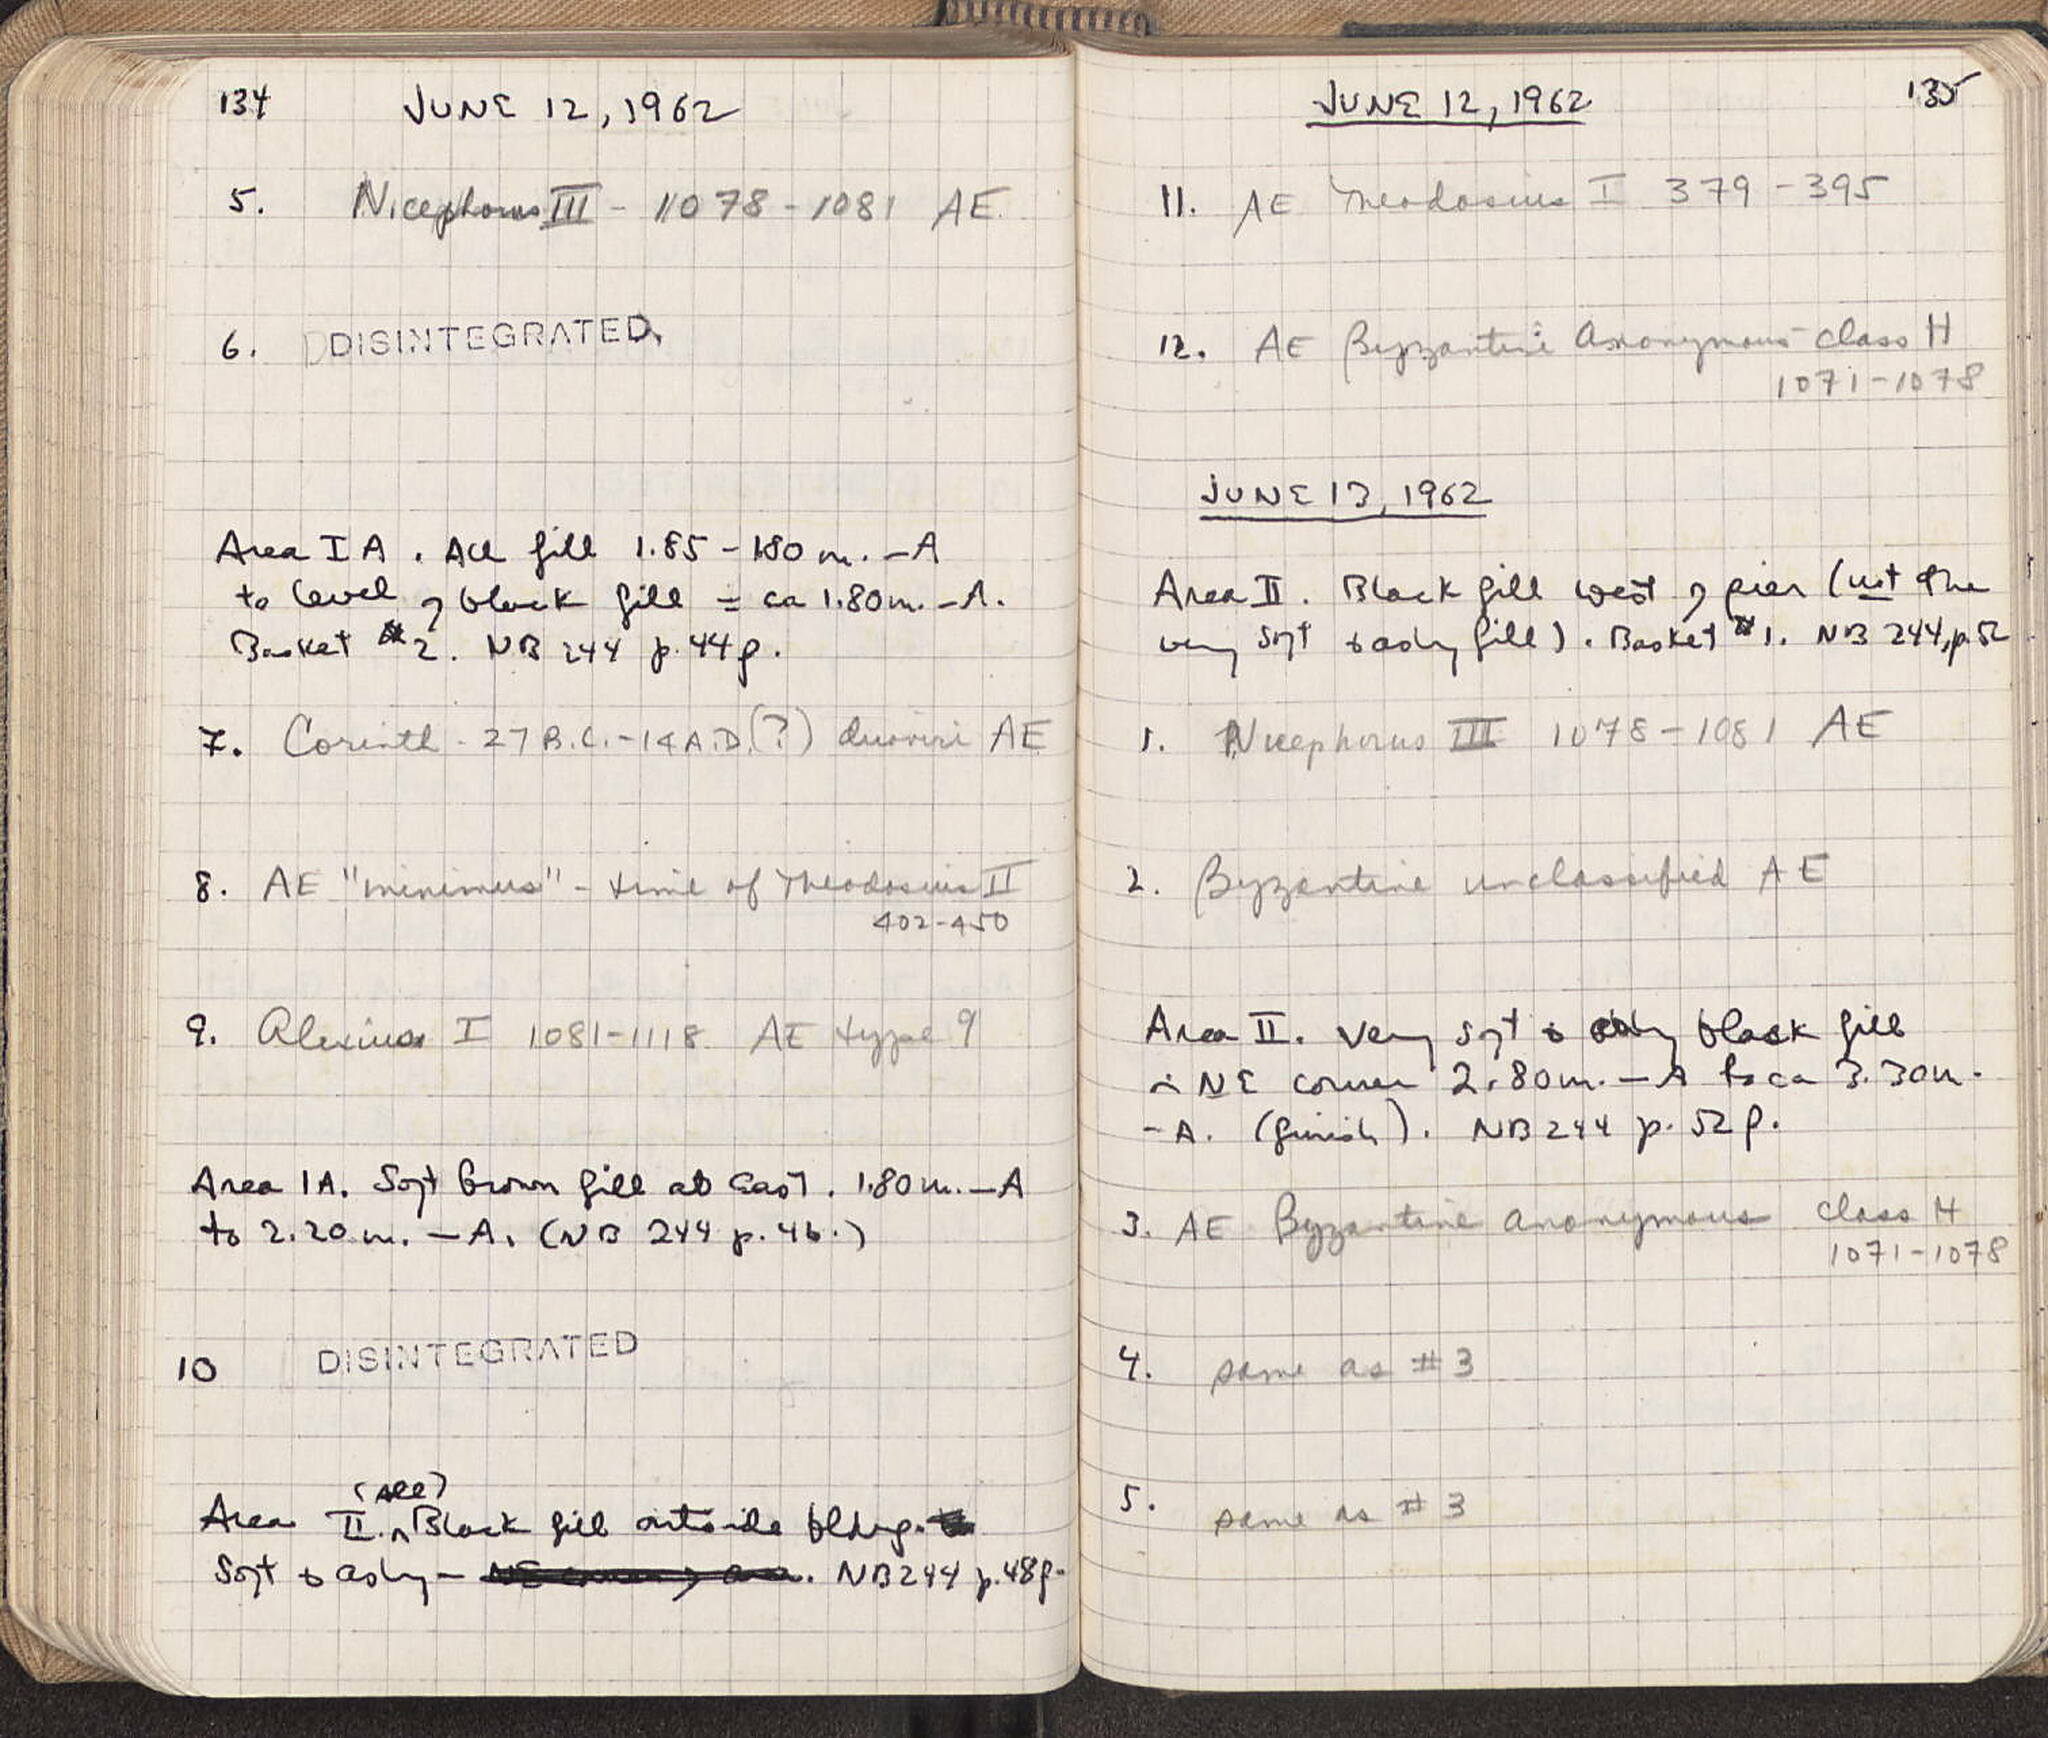 134 JUNE 12, 1962
5. Nicephorus III - 1078 - 1081 AE
6. DISINTEGRATED.
Area I A. All fill 1.85 - 1.80 m. - A
to level of black fill = ca 1.80 m. - A.
Basket #2. NB 244 p. 44f.
7. Corinth - 27 B.C. - 14 A.D. (?) duoviri AE
8. AE "minimus" - time of Theodosius II
402-450
9. Alexius I 1081-1118 AE type 9
Area IA. Soft brown fill at East. 1.80 m. - A
to 2.20 m. - A. (NB 244 p. 46.)
10 DISINTEGRATED
(All)
Area II. ^ Black fill outside bldg.
Soft & ashy - NE corner of area. NB 244 p. 48f.
JUNE 12, 1962 135
11. AE Theodosius I 379 - 395
12. AE Byzantine Anonymous class H
1071-1078
JUNE 13, 1962
Area II. Black fill west of pier (not the
very soft & ashy fill). Basket #1. NB 244, p. 52
1. Nicephorus III 1078 - 1081 AE
2. Byzantine unclassified AE
Area II. Very soft & ashy black fill
in NE corner 2.80 m. - A to ca 3.30 m.
- A. (finish). NB 244 p. 52 f.
3. AE Byzantine Anonymous class H
1071-1078
4. same as #3
5. same as #3